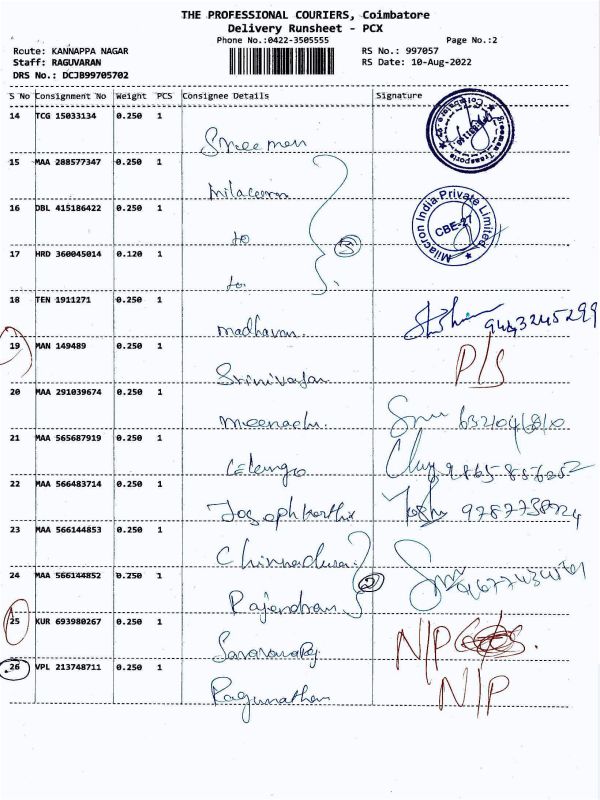 THE PROFESSIONAL COURIERS, Coimbatore
Delivery Runsheet - PCX
Phone No.:0422-3505555 Page No.:2
Route: KANNAPPA NAGAR RS No.: 997057
Staff: RAGUVARAN RS Date: 10-Aug-2022
DRS No.: DCJB99705702
S No Consignment No Weight PCS Consignee Details Signature
14 TCG 15033134 0.250 1
Sreeman
15 MAA 288577347 0.250 1
Milacron
16 DBL 415186422 0.250 1
to
3
Milacron India Private Limited
CBE-27
17 HRD 360045014 0.120 1
to
18 TEN 1911271 0.250 1
madhavan.
19 MAN 149489 0.250 1
Srinivasan P/S
20 MAA 291039674 0.250 1
meenachi.
21 MAA 565687919 0.250 1
22 MAA 566483714 0.250 1
23 MAA 566144853 0.250 1
Chinnadurai
24 MAA 566144852 0.250 1
2
Rajendran
25 KUR 693980267 0.250 1
N/P
26 VPL 213748711 0.250 1
Ragunathan N/P